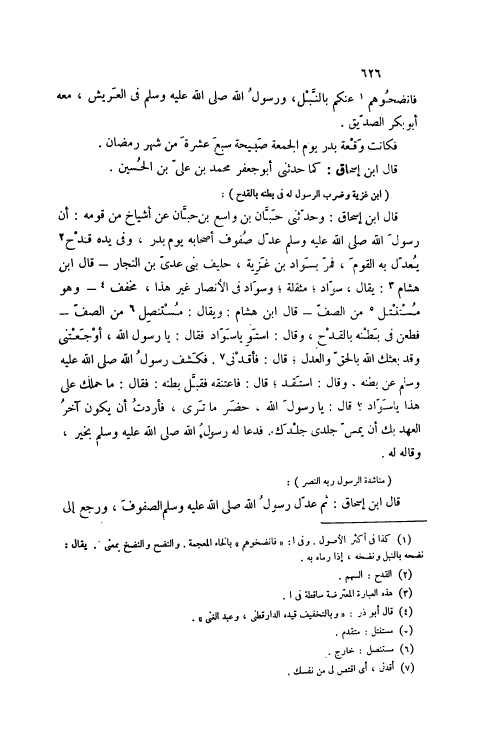 ٦٢٦
فانضحُوهم ١ عنكم بالنَّبْل، ورسولُ الله صلى الله عليه وسلم فى العَريش ، معه
أبو بكر الصدّيق .
فكانت وَقْعة بدر يوم الجمعة صَبيحة سبعَ عشرةَ من شهر رمضان .
قال ابن إسحاق : كما حدثنى أبو جعفر محمد بن علىّ بن الحُسين .
( ابن غزية وضرب الرسول له فى بطنه بالقدح ) :
قال ابن إسحاق : وحدثنى حَبَّان بن واسع بن حبَّان عن أشياخ من قومه : أن
رسولَ الله صلى الله عليه وسلم عدّل صُفوف أصحابه يوم بدر ، وفى يده قِدْح ٢
يُعدّل به القومَ ، فمرّ بسَواد بن غَزِية ، حليف بنى عدىّ بن النجار – قال ابن
هشام ٣ : يقال ، سوّاد ؛ مثقلة ؛ وسوَاد فى الأنصار غير هذا ، مخفف ٤ – وهو
مُسْتنتل ٥ من الصف – قال ابن هشام : ويقال : مُسْتنصل ٦ من الصف –
فطعن فى بَطْنه بالقدْح ، وقال : استو ياسَوّاد فقال : يا رسول الله ، أوْجَعتنى
وقد بعثك الله بالحقّ والعدل ؛ قال : فأقِدْنى ٧ . فكشف رسولُ الله صلى الله عليه
وسلم عن بطنه . وقال : استَقد ؛ قال : فاعتنقه فقبَّل بطنه : فقال : ما حملك على
هذا ياسوّاد ؟ قال : يا رسولَ الله ، حضَر ما ترى ، فأردتُ أن يكون آخرُ
العهد بك أن يمسّ جلدى جلدَك . فدعا له رسولُ الله صلى الله عليه وسلم بخير ،
وقاله له .
( مناشدة الرسول ربه النصر ) :
قال ابن إسحاق : ثم عدّل رسولُ الله صلى الله عليه وسلم الصفوفَ ، ورجع إلى
(١) كذا فى أكثر الأصول . وفى ا : « فانضخوهم » بالخاء المعجمة . والنضح والنضخ بمعنى . يقال :
نضحه بالنبل ونضخه ، إذا رماه به .
(٢) القدح : السهم .
(٣) هذه العبارة المعترضة ساقطة فى ا .
(٤) قال أبو ذر : « وبالتخفيف قيده الدارقطنى ، وعبد الغنى » .
(٥) مستنتل : متقدم .
(٦) مستنصل : خارج .
(٧) أقدنى ، أى اقتص لى من نفسك .